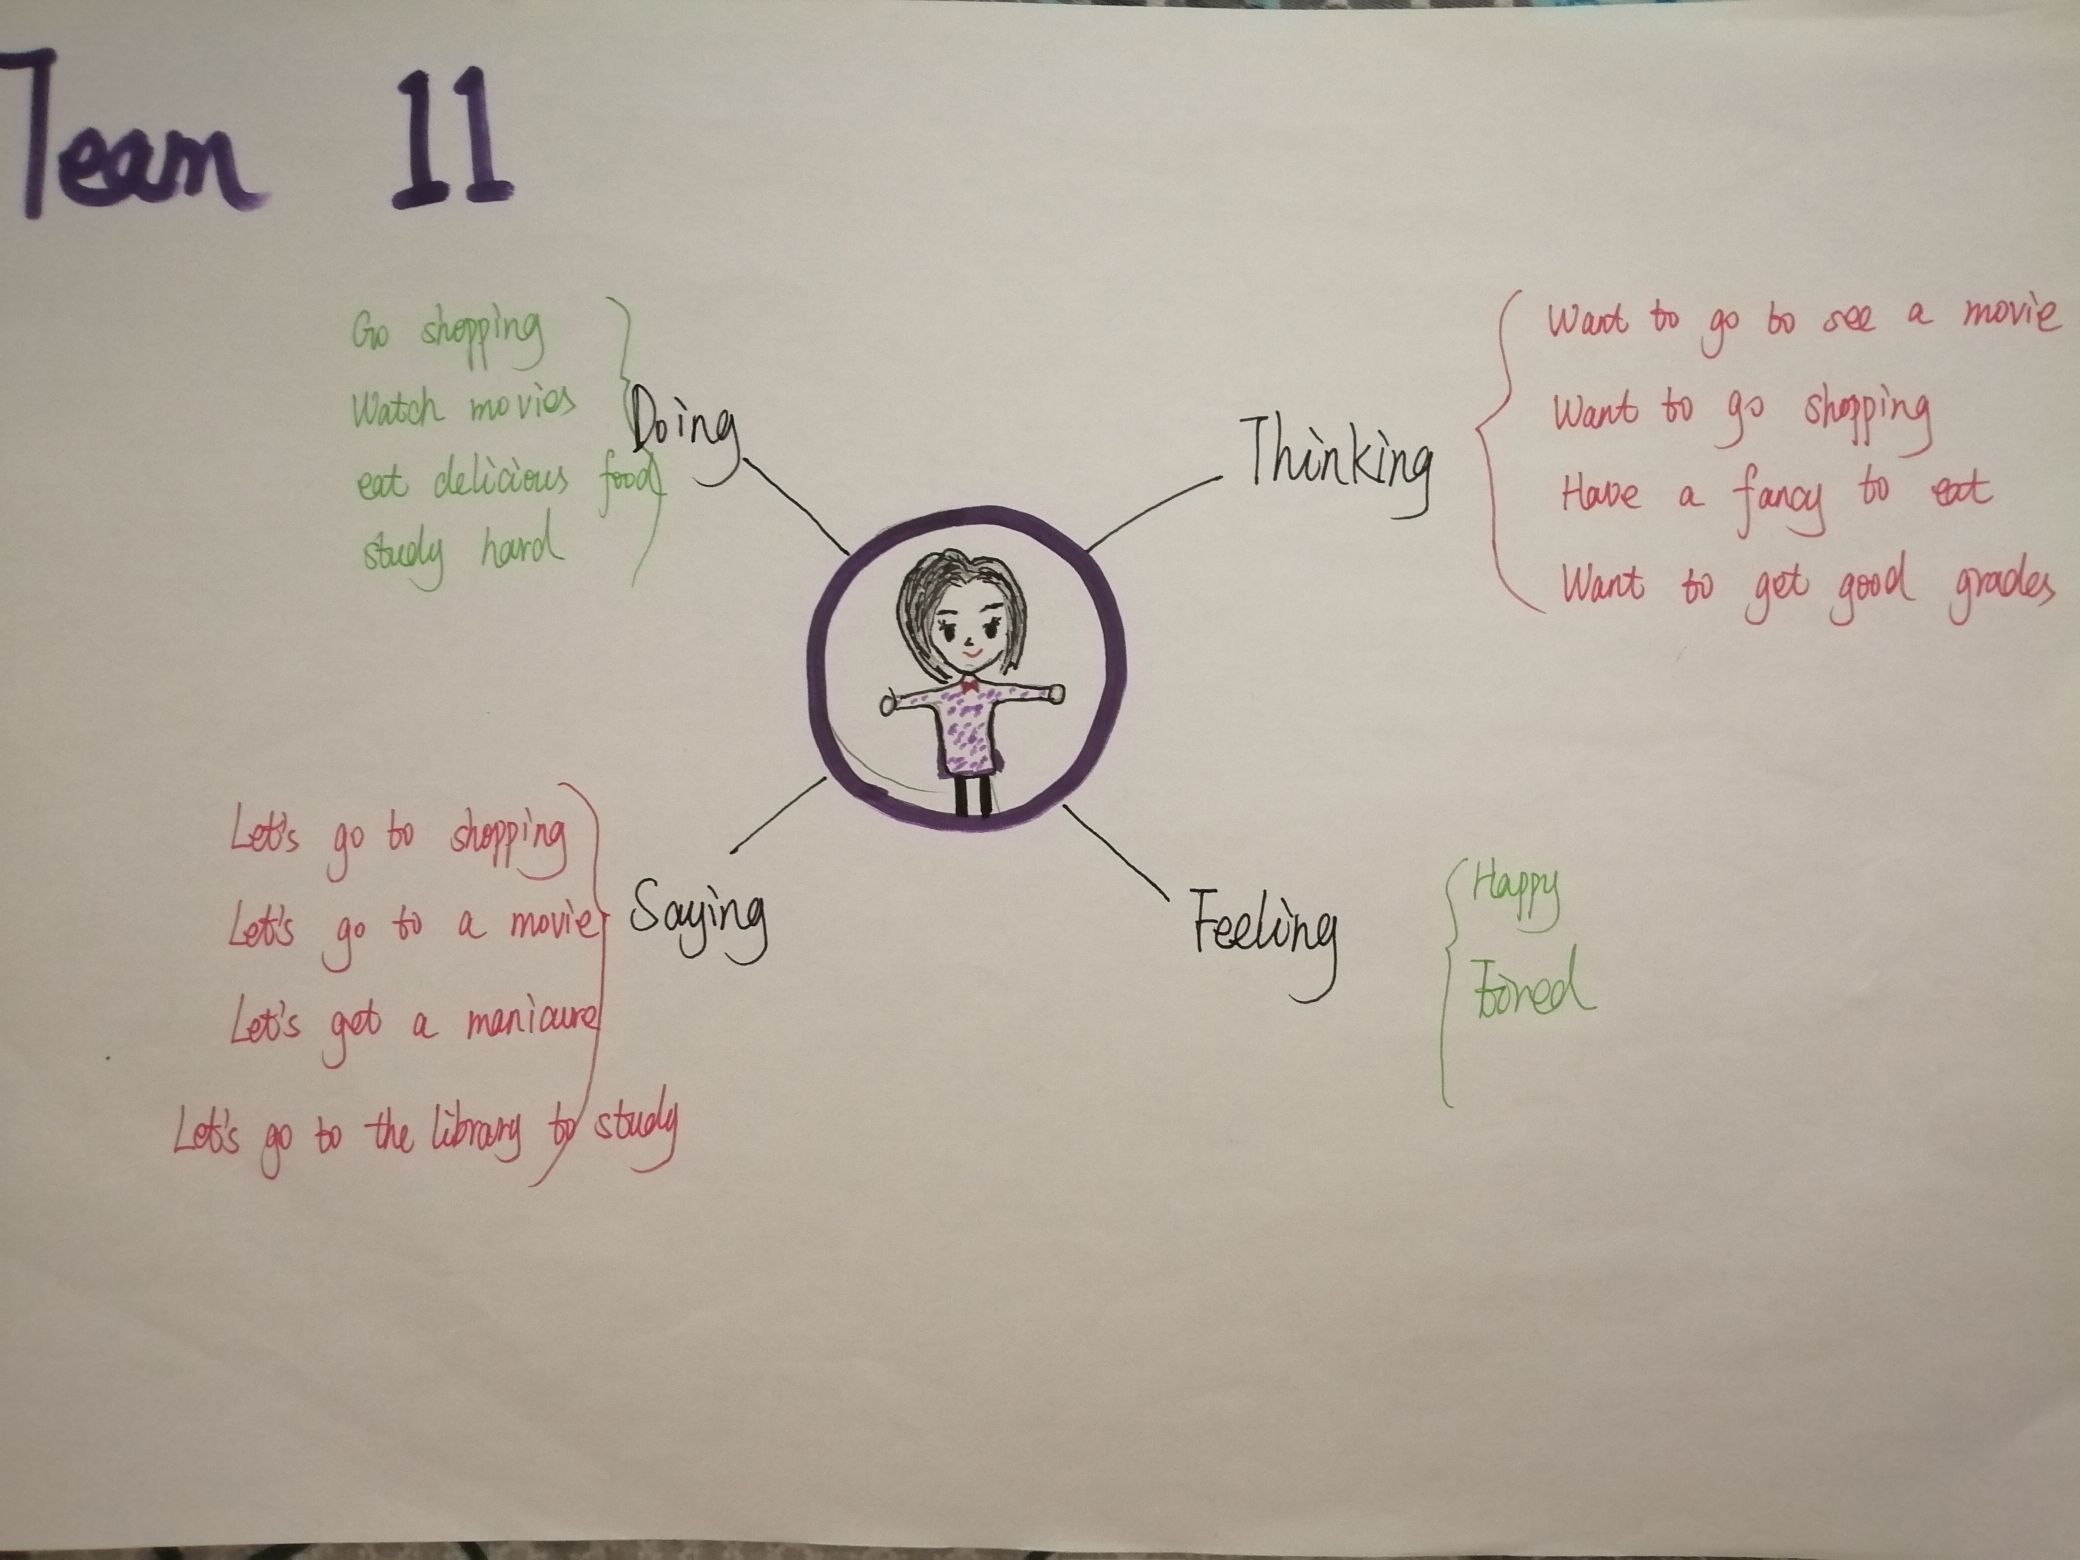 Team 11
Go shopping
Watch movies
eat delicious food
study hard
Doing
Thinking
Want to go to see a movie
Want to go shopping
Have a fancy to eat
Want to get good grades
Let's go to shopping
Let's go to a movie
Let's get a manicure
Let's go to the library to study
Saying
Feeling
Happy